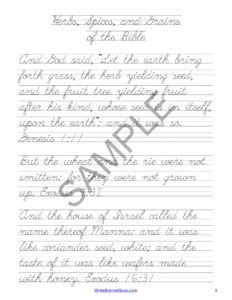 Herbs, Spices, and Grains
of the Bible
And God said, "Let the earth bring
forth grass, the herb yielding seed,
and the fruit tree yielding fruit
after his kind, whose seed is in itself,
upon the earth": and it was so.
Genesis 1:11
But the wheat and the rie were not
smitten: for they were not grown
up. Exodus 9:32
And the house of Israel called the
name thereof Manna: and it was
like coriander seed, white; and the
taste of it was like wafers made
with honey. Exodus 16:31
SAMPLE